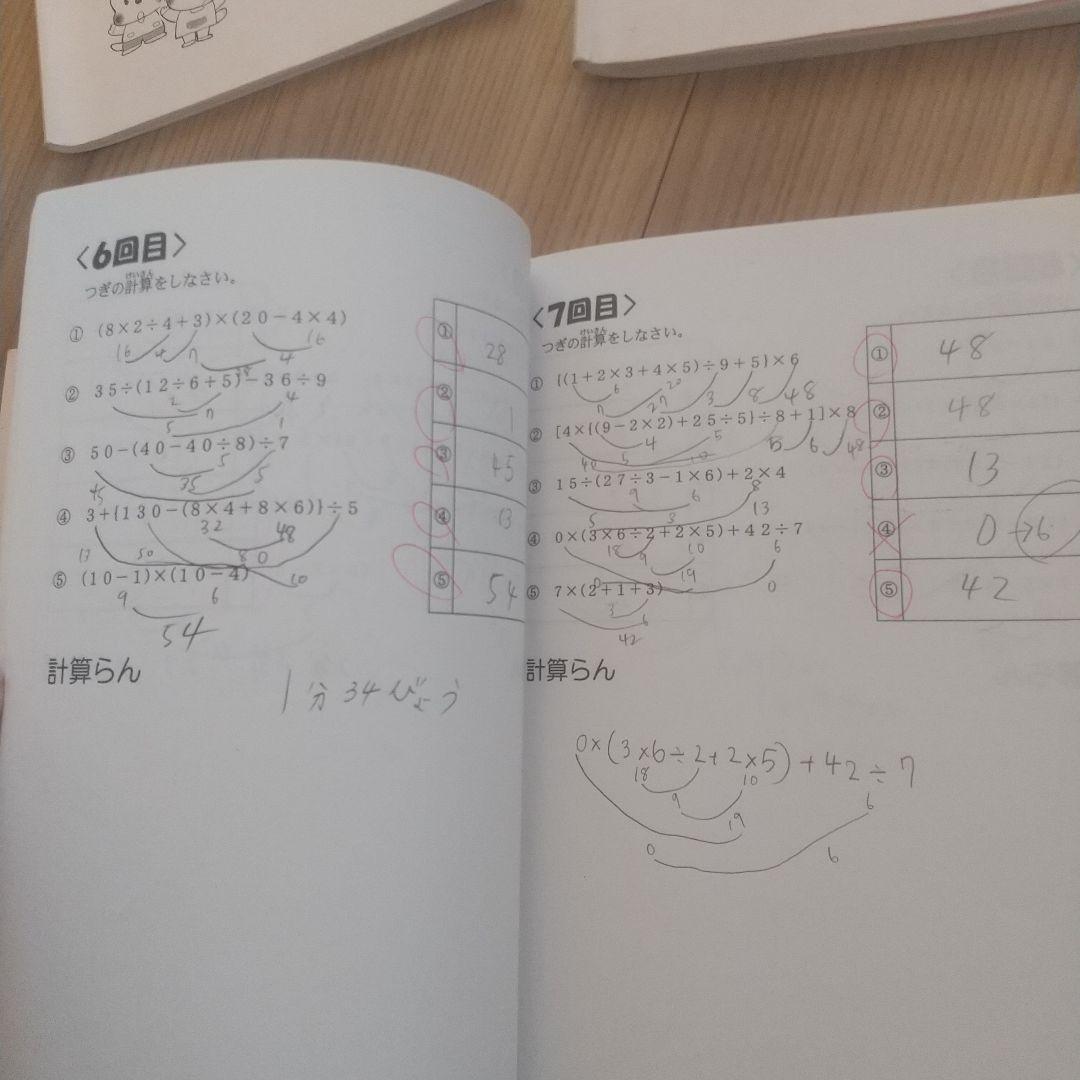 〈6回目〉
つぎの計算をしなさい。
けいさん
① (8×2÷4+3)×(20-4×4)
16 4 7 4 16
② 35÷(12÷6+5)-36÷9
2 7 4
5 1
③ 50-(40-40÷8)÷7
5
35 5
45
④ 3+{130-(8×4+8×6)}÷5
32 48
13 50 80 10
⑤ (10-1)×(10-4)
9 6
54
① 28
② 1
③ 45
④ 13
⑤ 54
計算らん
1分34びょう
〈7回目〉
つぎの計算をしなさい。
けいさん
① {(1+2×3+4×5)÷9+5}×6
6 20
7 27 3 8 48
② [4×{(9-2×2)+25÷5}÷8+1]×8
4 5
40 5 10 5 6 48
③ 15÷(27÷3-1×6)+2×4
9 6 8
5 3 13
④ 0×(3×6÷2+2×5)+42÷7
18 9 10 6
19
0 0
⑤ 7×(2+1+3)
3 6
42
① 48
② 48
③ 13
④ 0→6
⑤ 42
計算らん
0×(3×6÷2+2×5)+42÷7
18 10
9 6
19
0 6